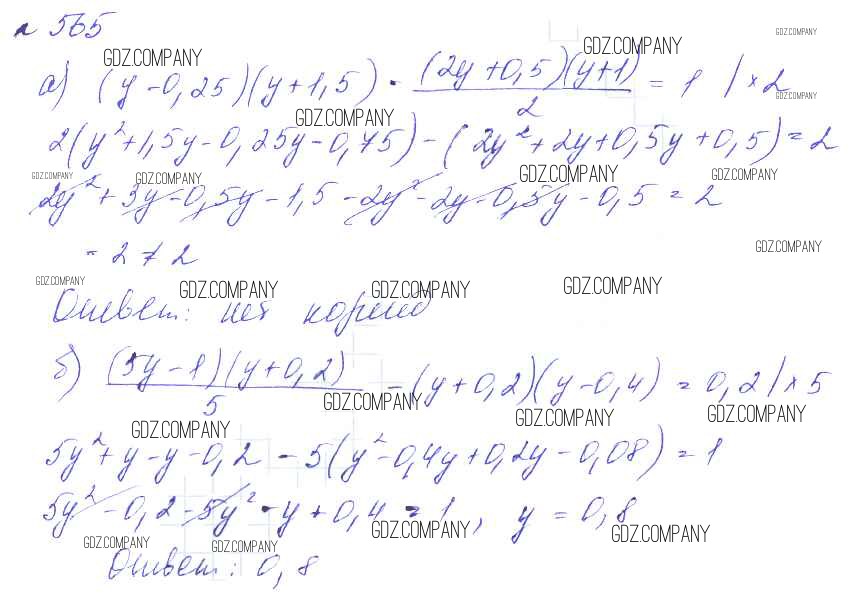 № 565
GDZ.COMPANY GDZ.COMPANY GDZ.COMPANY
а) (y - 0,25)(y + 1,5) - (2y + 0,5)(y + 1) / 2 = 1 | × 2
GDZ.COMPANY GDZ.COMPANY
2(y² + 1,5y - 0,25y - 0,75) - (2y² + 2y + 0,5y + 0,5) = 2
GDZ.COMPANY GDZ.COMPANY GDZ.COMPANY GDZ.COMPANY
2y² + 3y - 0,5y - 1,5 - 2y² - 2y - 0,5y - 0,5 = 2
- 2 ≠ 2
GDZ.COMPANY
GDZ.COMPANY GDZ.COMPANY GDZ.COMPANY GDZ.COMPANY
Ответ: нет корней
б) (5y - 1)(y + 0,2) / 5 - (y + 0,2)(y - 0,4) = 0,2 | × 5
GDZ.COMPANY GDZ.COMPANY GDZ.COMPANY GDZ.COMPANY
5y² + y - y - 0,2 - 5(y² - 0,4y + 0,2y - 0,08) = 1
5y² - 0,2 - 5y² - y + 0,4 = 1, y = 0,8
GDZ.COMPANY GDZ.COMPANY GDZ.COMPANY GDZ.COMPANY
Ответ: 0,8